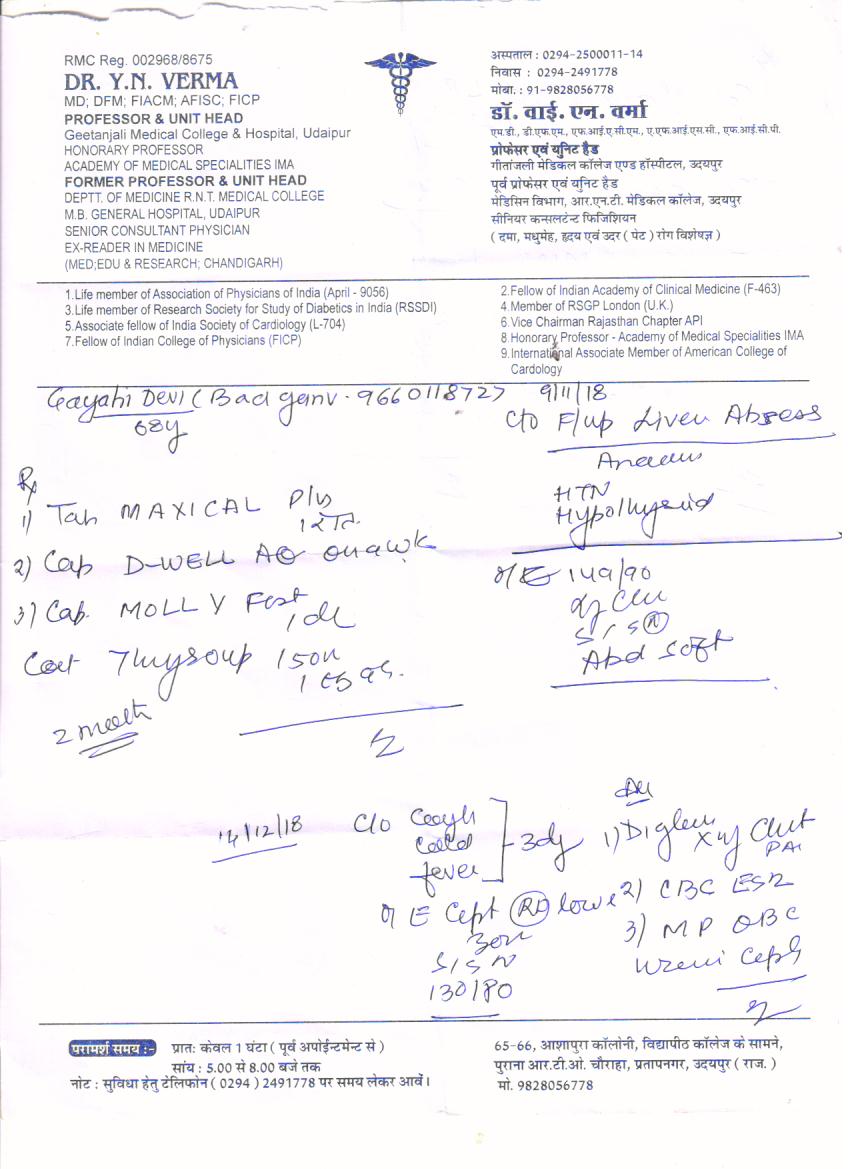 RMC Reg. 002968/8675
DR. Y.N. VERMA
MD; DFM; FIACM; AFISC; FICP
PROFESSOR & UNIT HEAD
Geetanjali Medical College & Hospital, Udaipur
HONORARY PROFESSOR
ACADEMY OF MEDICAL SPECIALITIES IMA
FORMER PROFESSOR & UNIT HEAD
DEPTT. OF MEDICINE R.N.T. MEDICAL COLLEGE
M.B. GENERAL HOSPITAL, UDAIPUR
SENIOR CONSULTANT PHYSICIAN
EX-READER IN MEDICINE
(MED;EDU & RESEARCH; CHANDIGARH)
अस्पताल : 0294-2500011-14
निवास : 0294-2491778
मोबा. : 91-9828056778
डॉ. वाई. एन. वर्मा
एम.डी., डी.एफ.एम., एफ.आई.ए.सी.एम., ए.एफ.आई.एस.सी., एफ.आई.सी.पी.
प्रोफेसर एवं यूनिट हैड
गीतांजली मेडिकल कॉलेज एण्ड हॉस्पीटल, उदयपुर
पूर्व प्रोफेसर एवं यूनिट हैड
मेडिसिन विभाग, आर.एन.टी. मेडिकल कॉलेज, उदयपुर
सीनियर कन्सलटेन्ट फिजिशियन
( दमा, मधुमेह, हृदय एवं उदर ( पेट ) रोग विशेषज्ञ )
1.Life member of Association of Physicians of India (April - 9056)
3.Life member of Research Society for Study of Diabetics in India (RSSDI)
5.Associate fellow of India Society of Cardiology (L-704)
7.Fellow of Indian College of Physicians (FICP)
2.Fellow of Indian Academy of Clinical Medicine (F-463)
4.Member of RSGP London (U.K.)
6.Vice Chairman Rajasthan Chapter API
8.Honorary Professor - Academy of Medical Specialities IMA
9.International Associate Member of American College of
Cardiology
Devi ( 9660118727 9/11/18
68y
C/o F/up Liver Absess
HTN
Rx
1) Tab MAXICAL Plus
2) Cap D-WELL AQ
3) Cap. MOLLY Fest
O/E 149/90
S1S2 N
Abd soft
2 month
14/12/18
C/o Cough
cold
fever
3dy
O/E
130/80
1)
2) CBC ESR
3) MP QBC
परामर्श समय :- प्रात: केवल 1 घंटा ( पूर्व अपोईन्टमेन्ट से )
सांय : 5.00 से 8.00 बजे तक
नोट : सुविधा हेतु टेलिफोन ( 0294 ) 2491778 पर समय लेकर आवें ।
65-66, आशापुरा कॉलोनी, विद्यापीठ कॉलेज के सामने,
पुराना आर.टी.ओ. चौराहा, प्रतापनगर, उदयपुर ( राज. )
मो. 9828056778